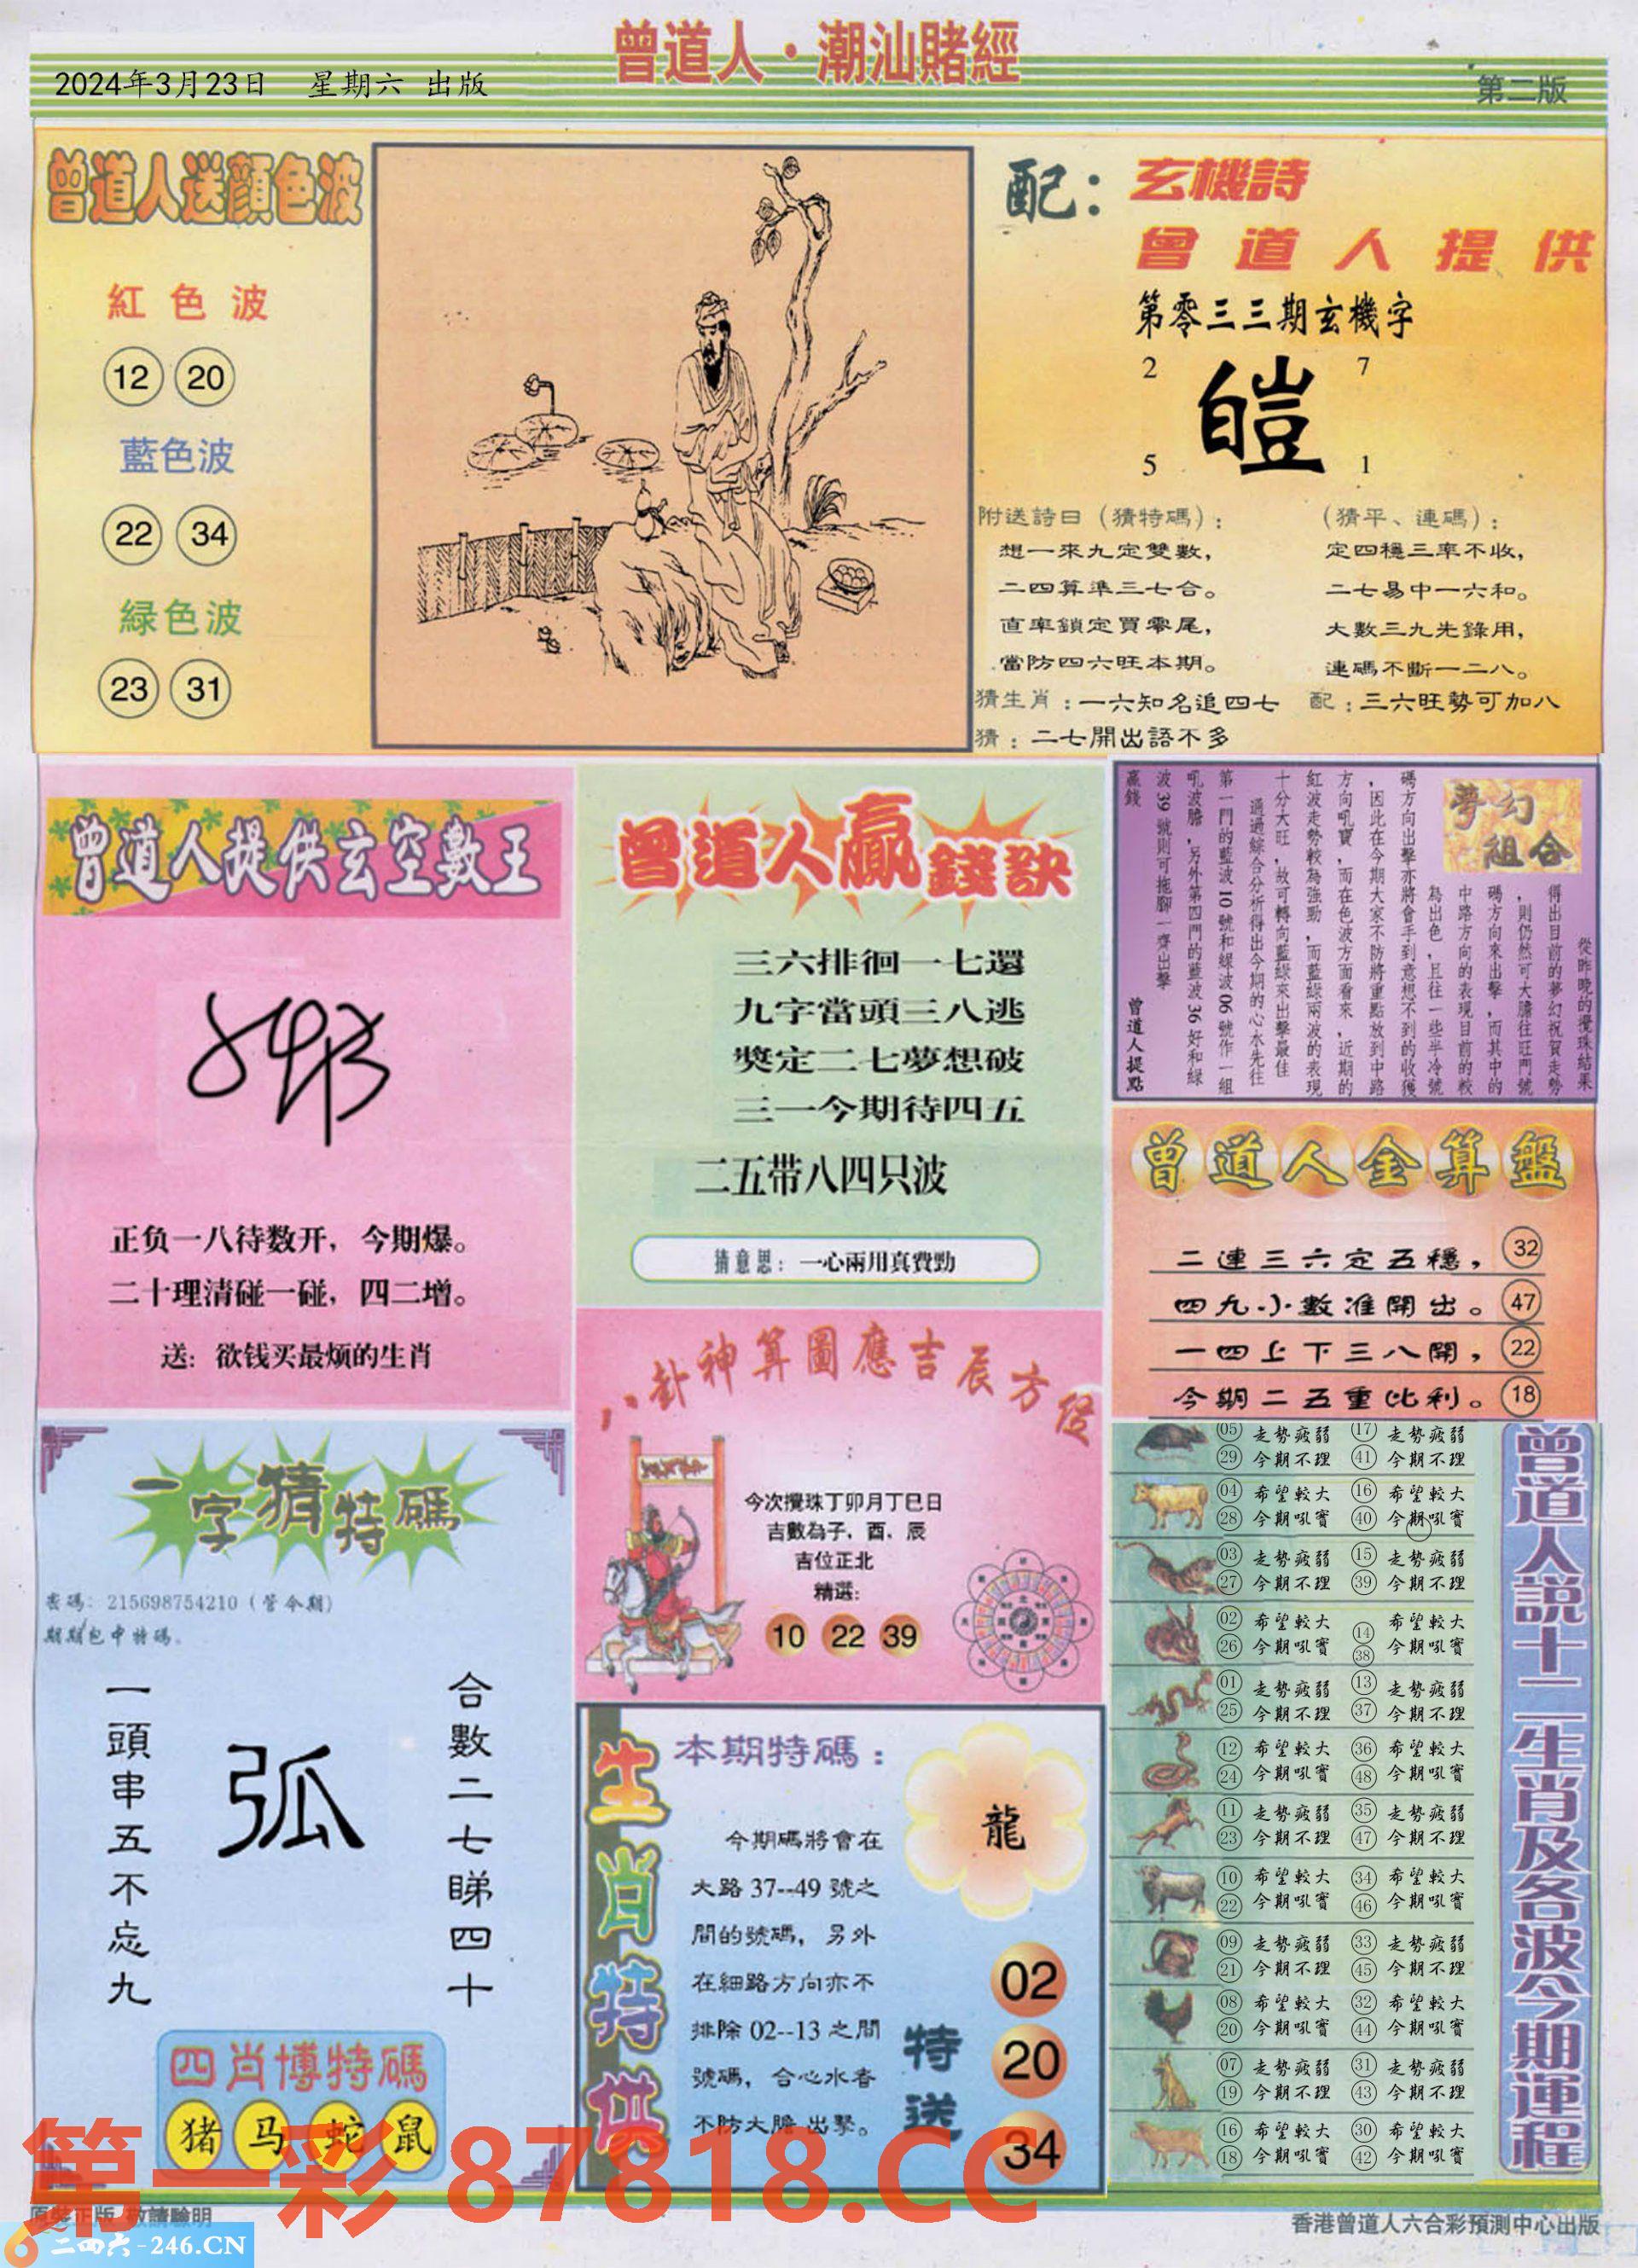 曾道人·潮汕賭經
2024年3月23日 星期六 出版
第二版
曾道人送顔色波
紅色波
12 20
藍色波
22 34
緑色波
23 31
配：玄機詩
曾道人提供
第零三三期玄機字
2 7
皚
5 1
附送詩曰（猜特碼）：
想一來九定雙數，
二四算準三七合。
直率鎖定買零尾，
當防四六旺本期。
（猜平、連碼）：
定四穩三率不收，
二七易中一六和。
大數三九先錄用，
連碼不斷一二八。
猜生肖：一六知名追四七
配：三六旺勢可加八
猜：二七開出語不多
曾道人提供玄空數王
正负一八待数开，今期爆。
二十理清碰一碰，四二增。
送：欲钱买最烦的生肖
曾道人贏錢訣
三六排徊一七還
九字當頭三八逃
獎定二七夢想破
三一今期待四五
二五带八四只波
猜意思：一心兩用真費勁
夢幻組合
從昨晚的攪珠結果
得出目前的夢幻祝賀走勢
，則仍然可大膽往旺門號
碼方向來出擊，而其中的
中路方向的表現目前的較
為出色，且往一些半冷號
碼方向出擊亦將會手到意想不到的收獲
，因此在今期大家不防將重點放到中路
方向吼寶，而在色波方面看來，近期的
紅波走勢較為強勁，而藍綠兩波的表現
十分大旺，故可轉向藍綠來出擊最佳
通過綜合分析得出今期的心水先往
第一門的藍波10號和綠波06號作一組
吼波膽，另外第四門的藍波36好和綠
波39號則可拖腳一齊出擊
贏錢
曾道人提點
曾道人金算盤
二連三六定五穩，32
四九小數准開出。47
一四上下三八開，22
今期二五重比利。18
八卦神算圖應吉辰方位
今次攪珠丁卯月丁巳日
吉數為子、酉、辰
吉位正北
精選：
10 22 39
一字猜特碼
密碼：215698754210（管今期）
期期包中特碼。
一頭串五不忘九
弧
合數二七睇四十
四肖博特碼
猪 马 蛇 鼠
生肖特供
本期特碼：
龍
今期碼將會在
大路37--49號之
間的號碼，另外
在細路方向亦不
排除02--13之間
號碼，合心水者
不防大膽出擊。
特送
02
20
34
曾道人說十二生肖及各波今期運程
05 走勢疲弱 17 走勢疲弱
29 今期不理 41 今期不理
04 希望較大 16 希望較大
28 今期吼實 40 今期吼實
03 走勢疲弱 15 走勢疲弱
27 今期不理 39 今期不理
02 希望較大 14 希望較大
26 今期吼實 38 今期吼實
01 走勢疲弱 13 走勢疲弱
25 今期不理 37 今期不理
12 希望較大 36 希望較大
24 今期吼實 48 今期吼實
11 走勢疲弱 35 走勢疲弱
23 今期不理 47 今期不理
10 希望較大 34 希望較大
22 今期吼實 46 今期吼實
09 走勢疲弱 33 走勢疲弱
21 今期不理 45 今期不理
08 希望較大 32 希望較大
20 今期吼實 44 今期吼實
07 走勢疲弱 31 走勢疲弱
19 今期不理 43 今期不理
16 希望較大 30 希望較大
18 今期吼實 42 今期吼實
第一彩 87818.CC
原裝正版 敬請驗明
二四六-246.CN
香港曾道人六合彩預測中心出版